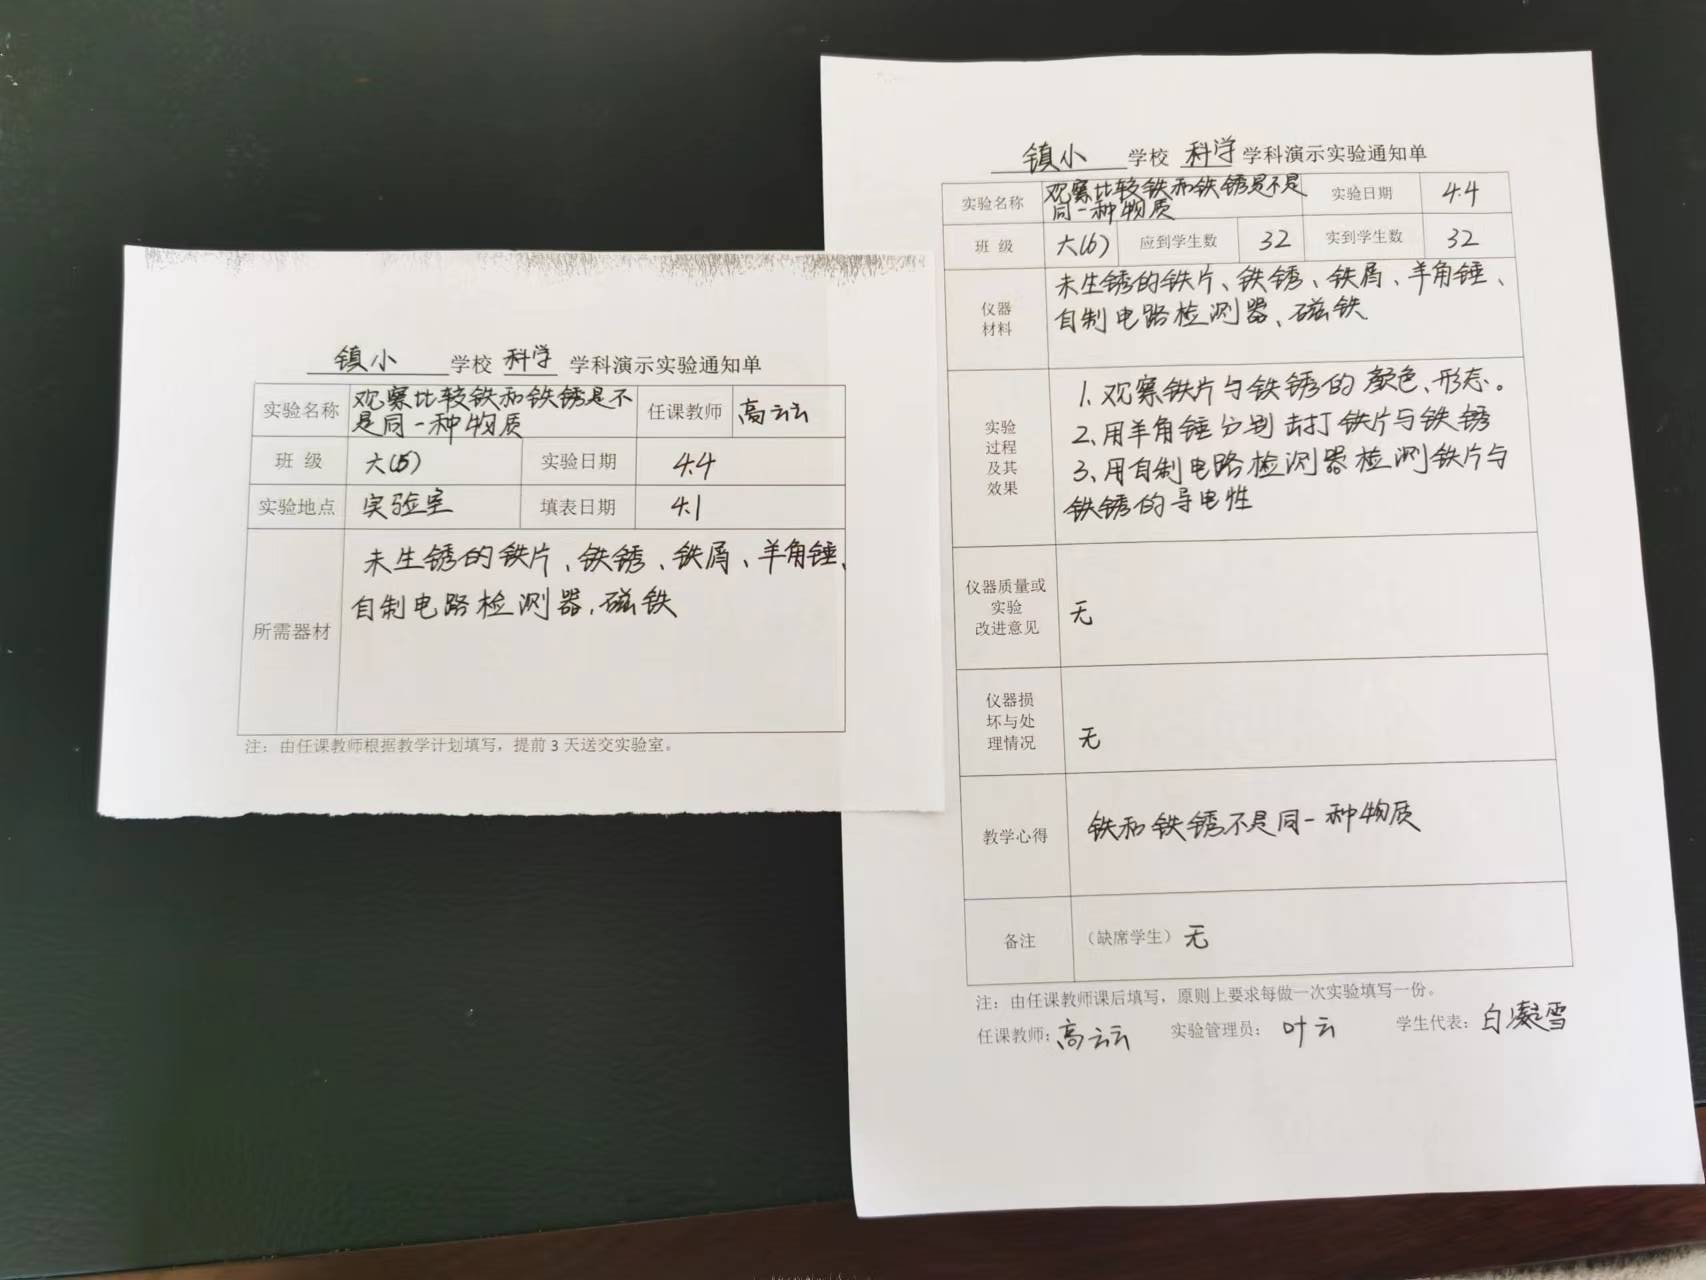 镇小 学校 科学 学科演示实验通知单
实验名称 观察比较铁和铁锈是不
是同一种物质 任课教师 高云云
班 级 大(5) 实验日期 4.4
实验地点 实验室 填表日期 4.1
所需器材 未生锈的铁片、铁锈、铁屑、羊角锤、
自制电路检测器、磁铁
注：由任课教师根据教学计划填写，提前 3 天送交实验室。
镇小 学校 科学 学科演示实验通知单
实验名称 观察比较铁和铁锈是不是
同一种物质 实验日期 4.4
班 级 大(6) 应到学生数 32 实到学生数 32
仪器
材料
未生锈的铁片、铁锈、铁屑、羊角锤、
自制电路检测器、磁铁
实验
过程
及其
效果
1.观察铁片与铁锈的颜色、形态。
2、用羊角锤分别击打铁片与铁锈
3、用自制电路检测器检测铁片与
铁锈的导电性
仪器质量或
实验
改进意见
无
仪器损
坏与处
理情况
无
教学心得 铁和铁锈不是同一种物质
备注 （缺席学生）无
注：由任课教师课后填写，原则上要求每做一次实验填写一份。
任课教师：高云云 实验管理员：叶云 学生代表：白凝雪